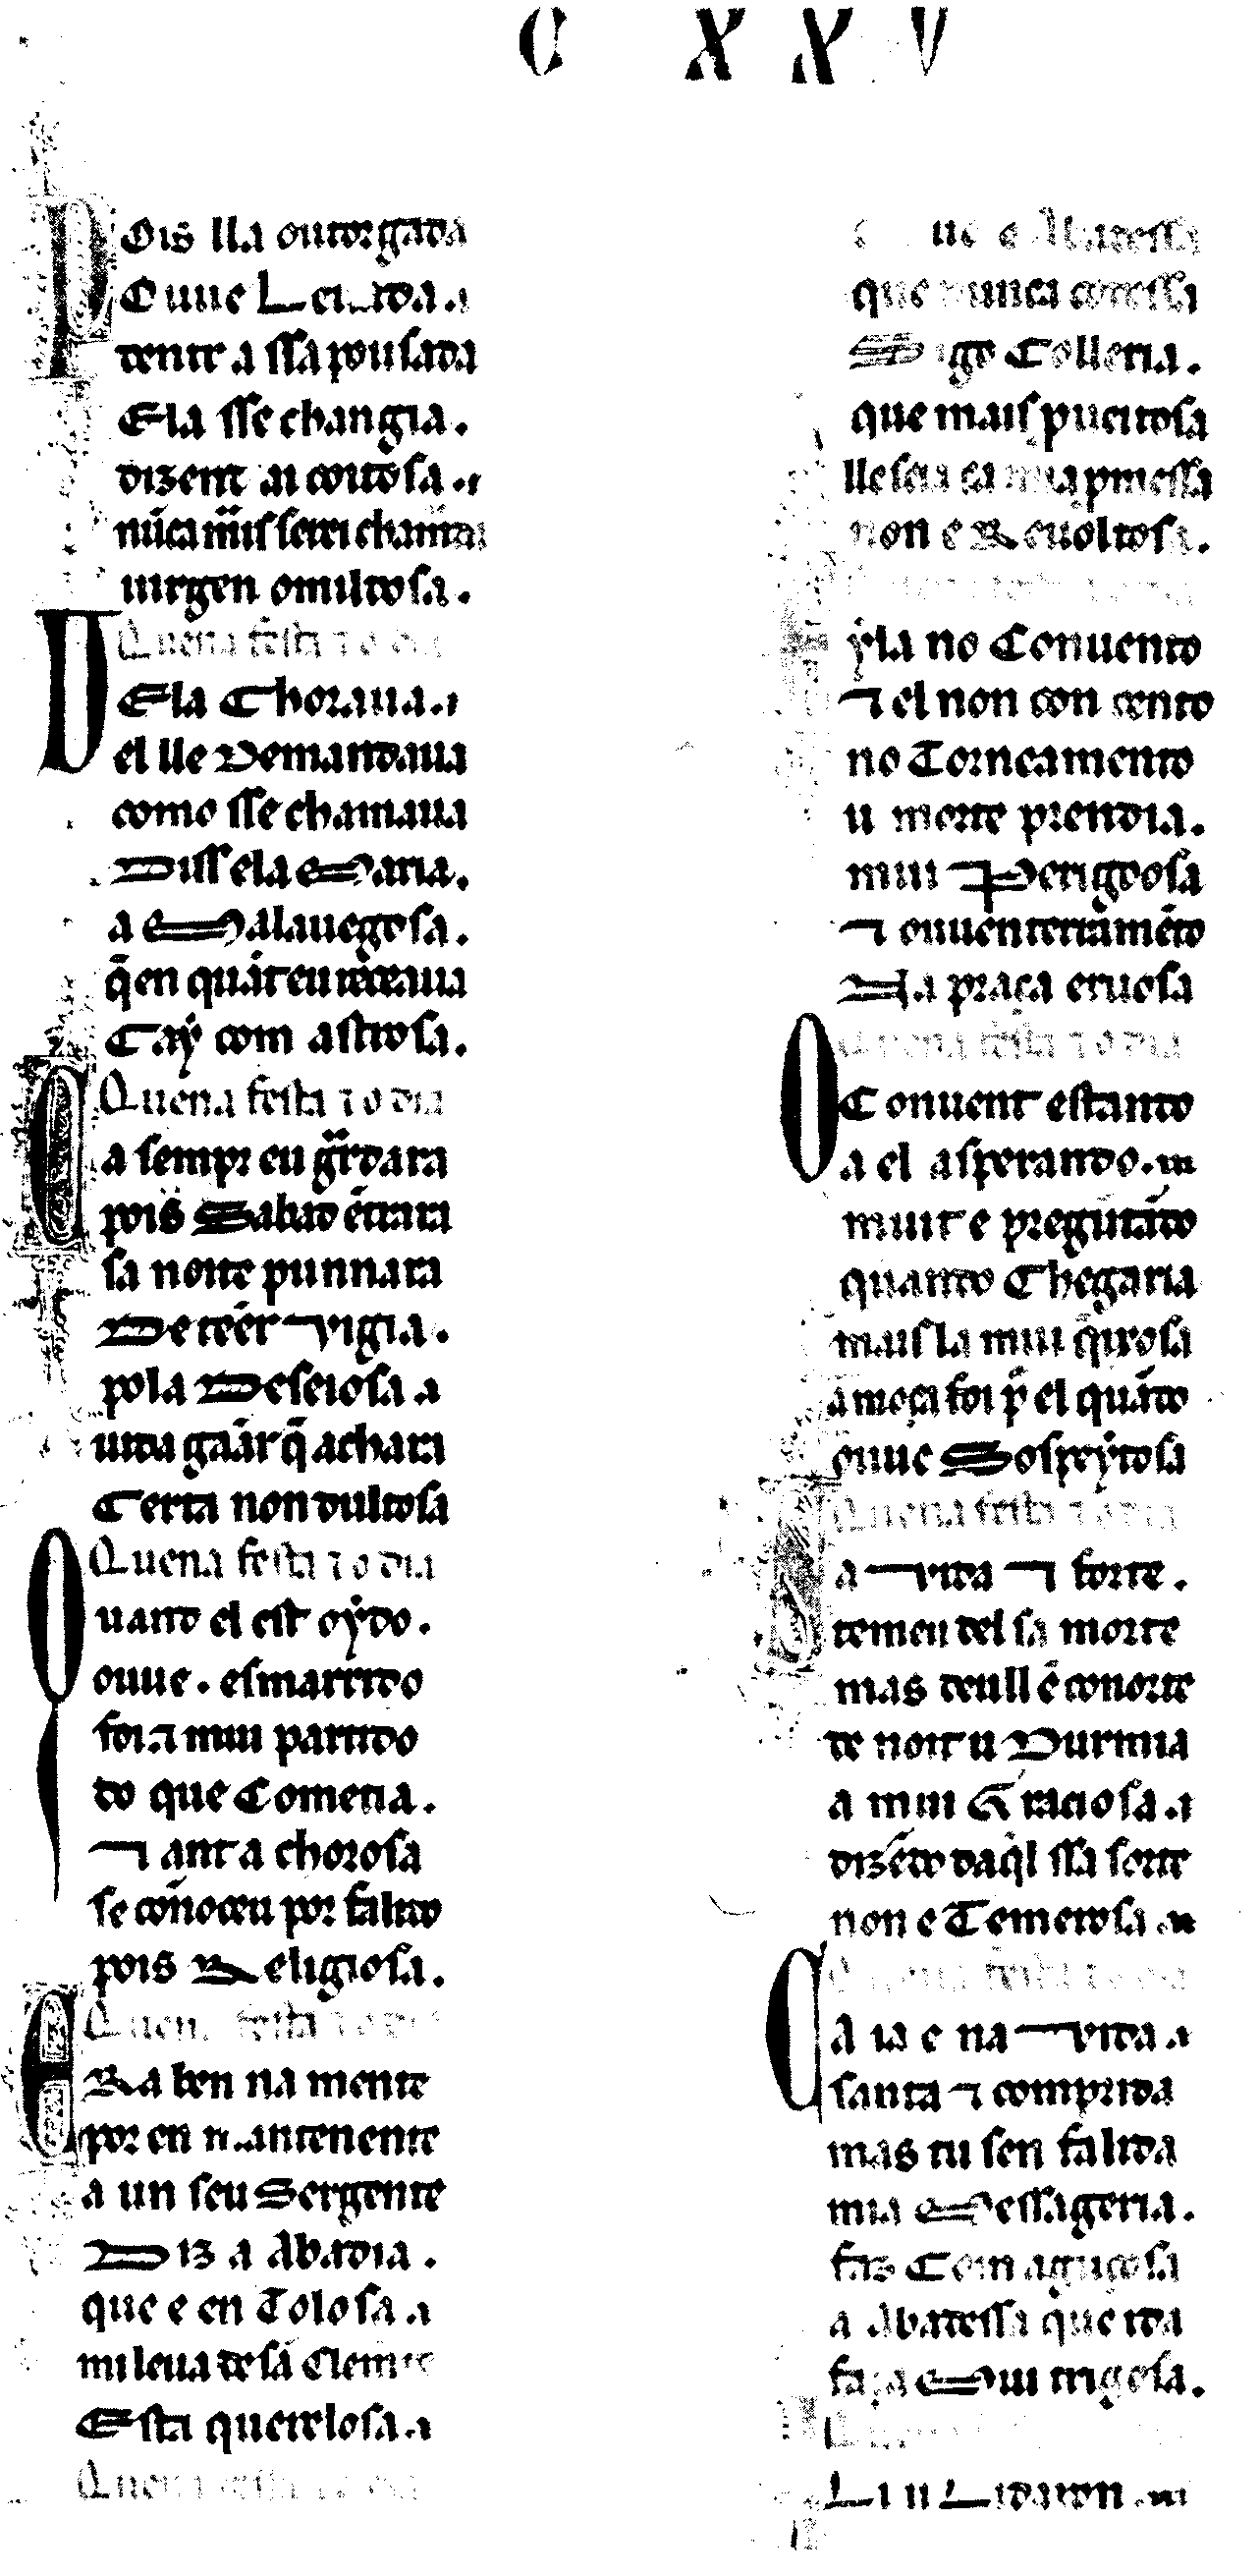 C X X V
POis lla outorgada
Ouue
tente a ssa pousada
Ela sse changia.
dizent ai coitosa.
nũca mais serei chamada
uirgen omildosa.
Quena festa ⁊ o dia
Ela Choraua.
el lle Demandaua
como sse chamaua
Diss ela Maria.
a Malauegosa.
q̃ en quãt eu receaua
Caẏ com astrosa.
Quena festa ⁊ o dia
a sempr eu gardara
pois Sabad ẽtrara
sa noite punnara
De teer vigia.
pola Deseiosa.
uida gãar q̃ achara
Certa non dultosa
Quena festa ⁊ o dia
Quand el est oẏdo.
ouue. esmarrido
foi. ⁊ mui partido
do que Comeria.
⁊ ant a chorosa
se coñoceu por falido
pois Religiosa.
Quena festa ⁊ o dia
ERa ben na mente
por en mantenente
a un seu Sergente
Diz a Abadia.
que e en Tolosa.
mi leua de sã Clemente
Esta querelosa.
Quena festa ⁊ o dia
que e Abadessa
que nunca
Sigo Colleria.
que mais pueitosa
lle seia ca mia pmessa
non e Reuoltosa.
ẏla no Conuento
⁊ el non con cento
no Torneamento
u morte prendia.
mui Perigoosa
⁊ ouuen terramẽto
Na praça eruosa
Quena festa ⁊ o dia
O Conuent estando
a el asperando.
muit e pregũtãdo
quando Chegaria
mais la mui q̃ixosa
a moça foi p̃ el quãdo
ouue Sospeẏtosa
Quena festa ⁊ o dia
a vida ⁊ forte.
temeu del sa morte
mas deull ẽ conorte
de noit u Durmia
a mui Graciosa.
dizẽdo daq̃l ssa sorte
non e Temerosa.
Quena festa ⁊ o dia
Ca ia e na vida.
santa ⁊ comprida
mas tu sen falida
mia Messageria.
faz Com aguçosa
a Abadessa que ida
faça Mui trigosa.
Quena